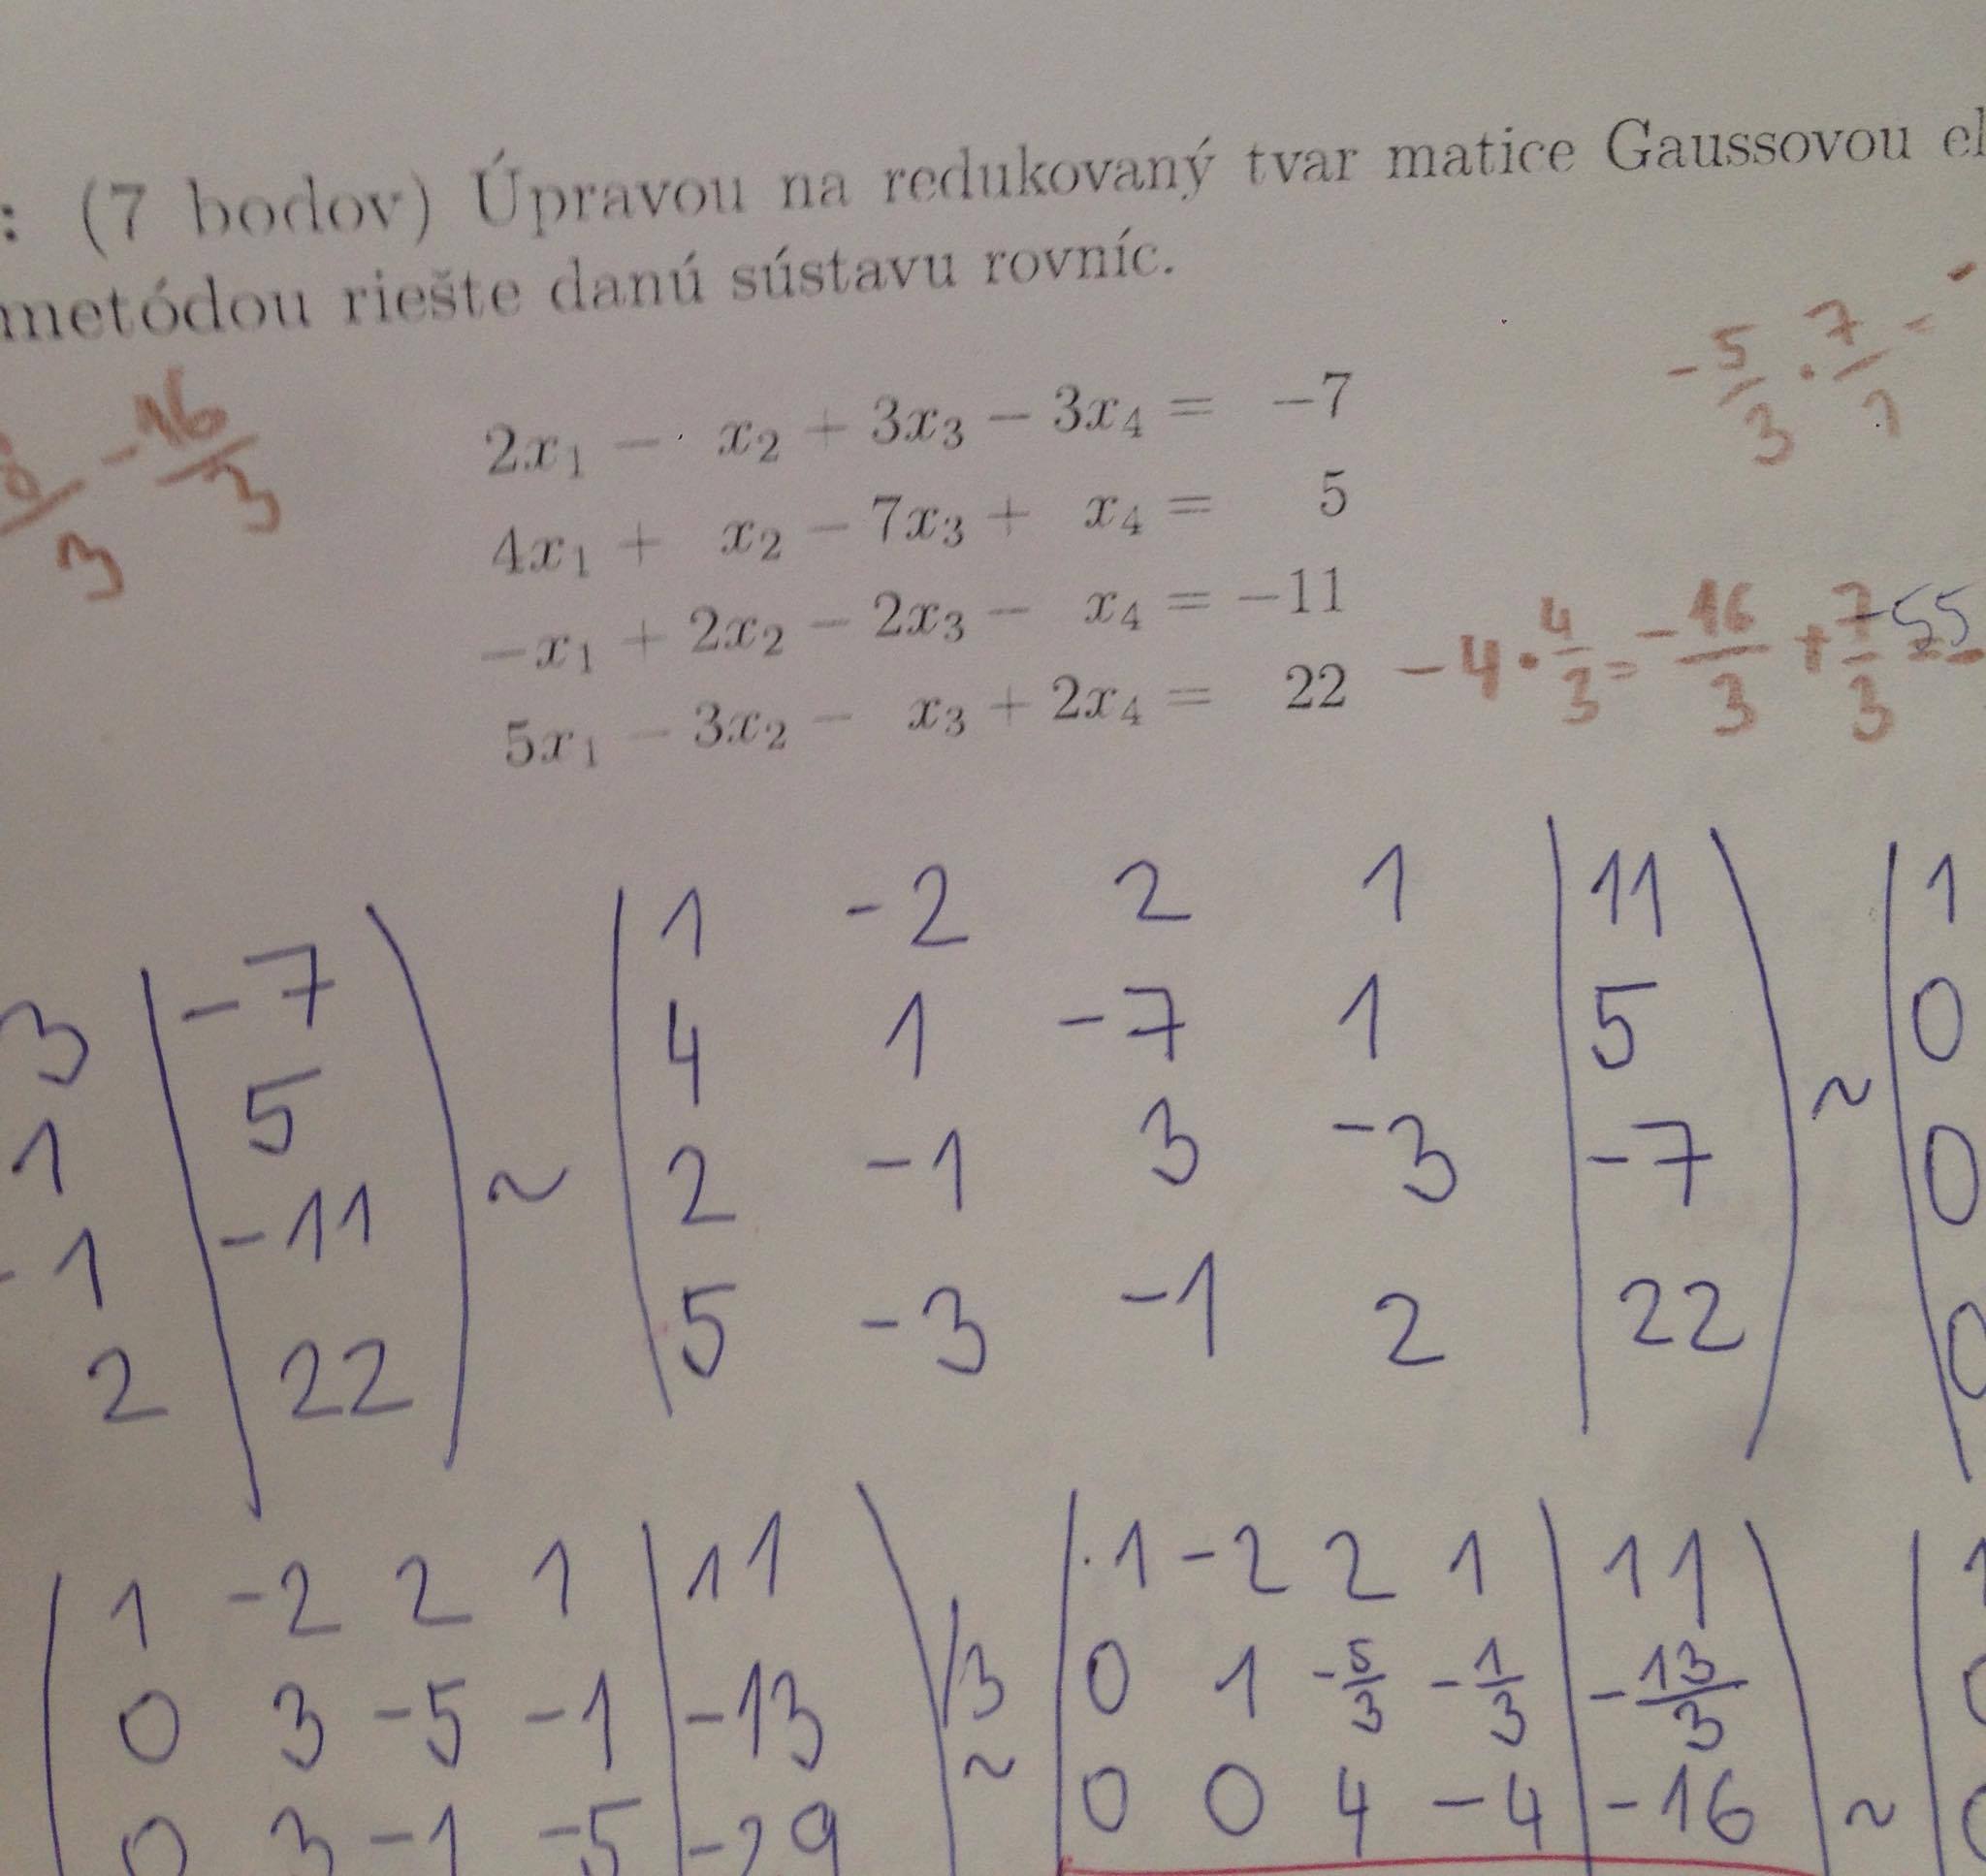 : (7 bodov) Úpravou na redukovaný tvar matice Gaussovou el
metódou riešte danú sústavu rovníc.
-5/3 · 7/1 =
-16/3
3
2x₁ − x₂ + 3x₃ − 3x₄ = −7
4x₁ + x₂ − 7x₃ + x₄ = 5
−x₁ + 2x₂ − 2x₃ − x₄ = −11
5x₁ − 3x₂ − x₃ + 2x₄ = 22
-4 · 4/3 = -16/3 + 7/3 =
-55
3 | -7
1 | 5
-1 | -11
2 | 22
~
1 -2 2 1 | 11
4 1 -7 1 | 5
2 -1 3 -3 | -7
5 -3 -1 2 | 22
~
1
0
0
0
1 -2 2 1 | 11
0 3 -5 -1 | -13 /3
0 3 -1 -5 | -29
~
1 -2 2 1 | 11
0 1 -5/3 -1/3 | -13/3
0 0 4 -4 | -16
~
1